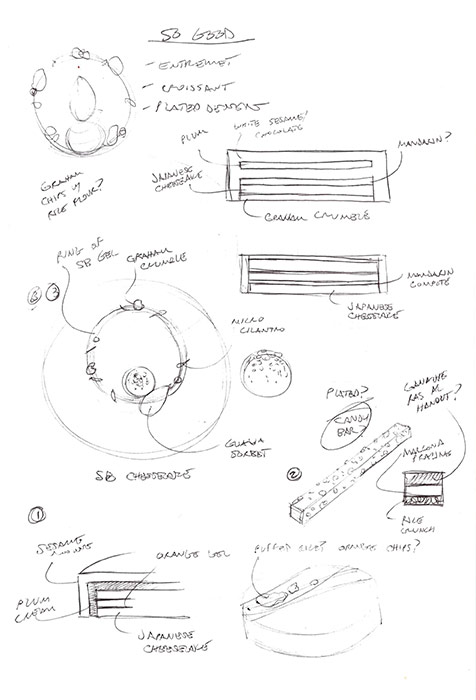 - ENTREMET
- CROISSANT
- PLATED DESSERT
GRAHAM
CHIPS W/
RICE FLOUR?
PLUM
WHITE SESAME/
CHOCOLATE
MANDARIN?
JAPANESE
CHEESECAKE
GRAHAM CRUMBLE
MANDARIN
COMPOTE
JAPANESE
CHEESECAKE
RING OF
SB GEL
GRAHAM
CRUMBLE
MICRO
CILANTRO
GUAVA
SORBET
SB CHEESECAKE
PLATED?
CANDY
BAR?
GANACHE
RAS AL
HANOUT?
MARCONA
PRALINE
RICE
CRUNCH
②
①
SESAME
ORANGE GEL
PLUM
JAPANESE
CHEESECAKE
PUFFED RICE? ORANGE CHIPS?